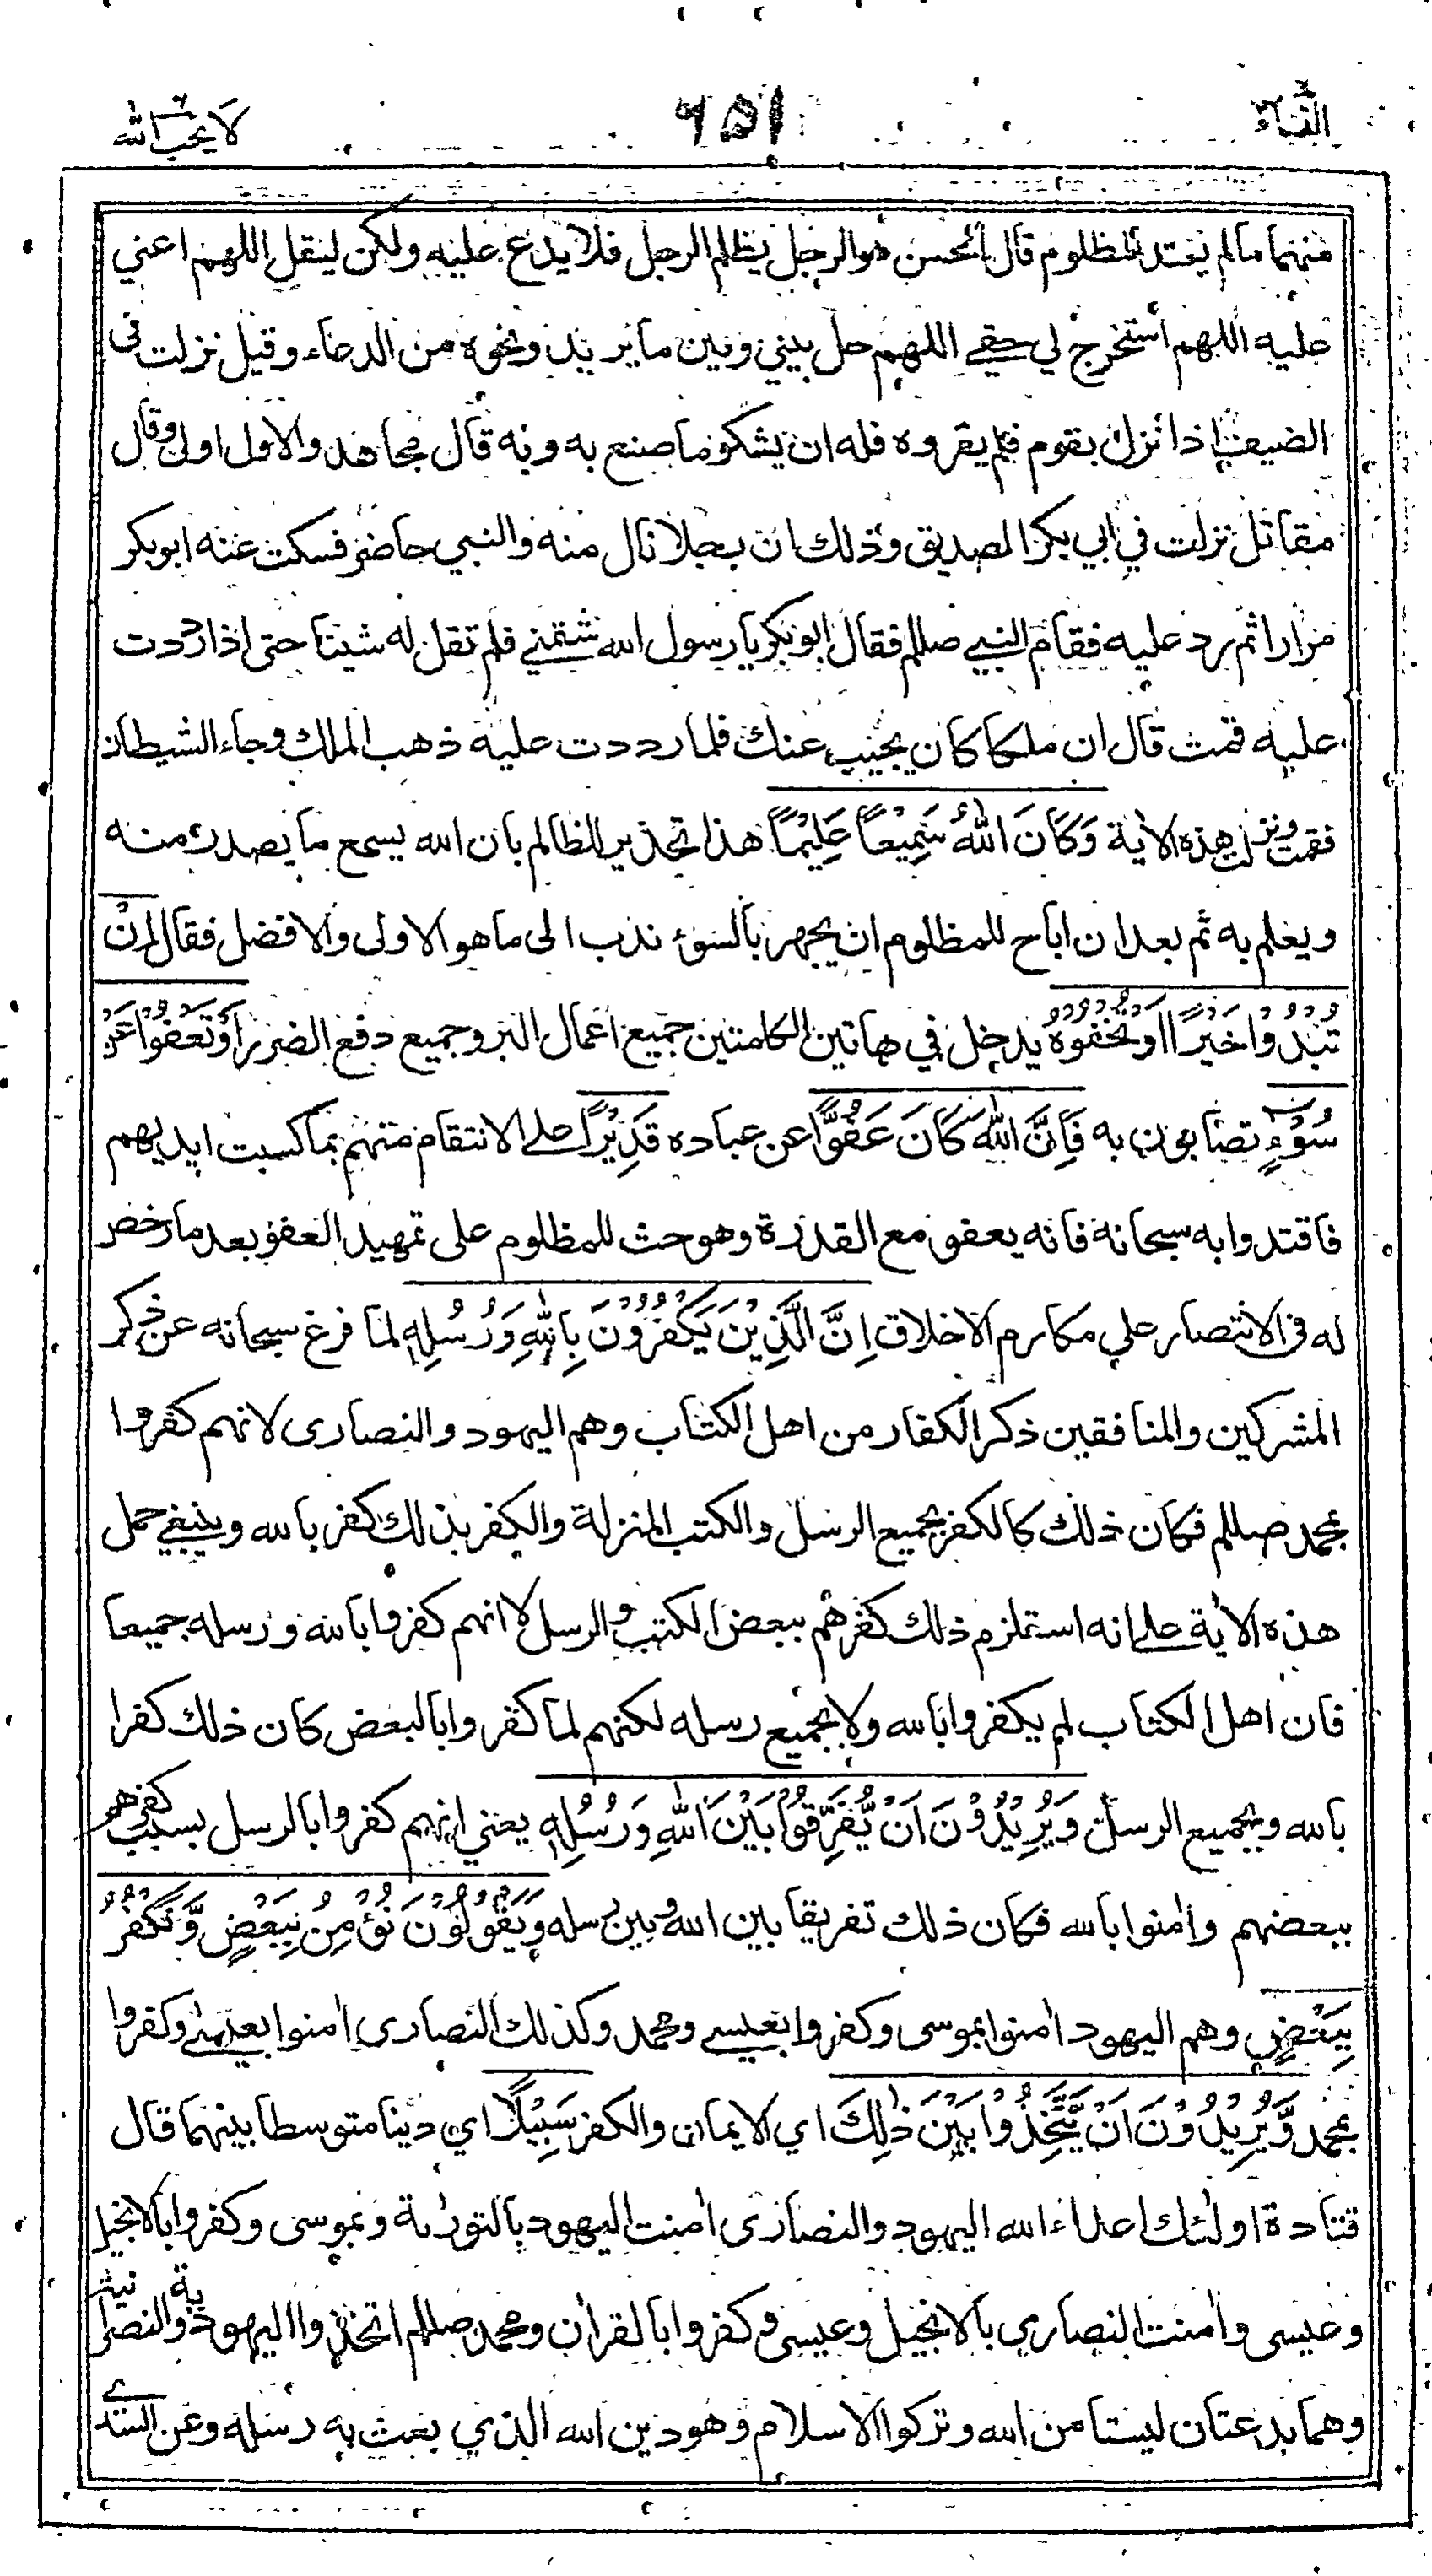 النساء ٦٥١ لا يحب الله
منهما ما لم يعتد المظلوم قال الحسن هو الرجل يظلم الرجل فلا يدع عليه ولكن ليقل اللهم اعني
عليه اللهم استخرج لي حقي اللهم حل بيني وبين ما يريد ونحوه من الدعاء وقيل نزلت في
الضيف اذا نزل بقوم فلم يقروه فله ان يشكو ما صنع به وبه قال مجاهد والاول اولى وقال
مقاتل نزلت في ابي بكر الصديق وذلك ان رجلا نال منه والنبي حاضر فسكت عنه ابو بكر
مرارا ثم رد عليه فقام النبي صللم فقال ابو بكر يا رسول الله شتمني فلم تقل له شيئا حتى اذا رددت
عليه قمت قال ان ملكا كان يجيب عنك فلما رددت عليه ذهب الملك وجاء الشيطان
فقمت ونزلت هذه الاية وَكَانَ اللهُ سَمِيْعًا عَلِيْمًا هذا تحذير للظالم بان الله يسمع ما يصدر منه
ويعلم به ثم بعد ان اباح للمظلوم ان يجهر بالسوء ندب الى ما هو الاولى والافضل فقال اِنْ
تُبْدُوْا خَيْرًا اَوْ تُخْفُوْهُ يدخل في هاتين الكلمتين جميع اعمال البر وجميع دفع الضرر اَوْ تَعْفُوْا عَنْ
سُوْٓءٍ تصابون به فَاِنَّ اللهَ كَانَ عَفُوًّا عن عباده قَدِيْرًا على الانتقام منهم بما كسبت ايديهم
فاقتدوا به سبحانه فانه يعفو مع القدرة وهو حث للمظلوم على تمهيد العفو بعد ما رخص
له في الانتصار على مكارم الاخلاق اِنَّ الَّذِيْنَ يَكْفُرُوْنَ بِاللهِ وَرُسُلِهٖ لما فرغ سبحانه عن ذكر
المشركين والمنافقين ذكر الكفار من اهل الكتاب وهم اليهود والنصارى لانهم كفروا
بمحمد صللم فكان ذلك كالكفر بجميع الرسل والكتب المنزلة والكفر بذلك كفر بالله وينبغي حمل
هذه الاية على انه استلزم ذلك كفرهم ببعض الكتب والرسل لا انهم كفروا بالله ورسله جميعا
فان اهل الكتاب لم يكفروا بالله ولا بجميع رسله لكنهم لما كفروا بالبعض كان ذلك كفرا
بالله وبجميع الرسل وَيُرِيْدُوْنَ اَنْ يُّفَرِّقُوْا بَيْنَ اللهِ وَرُسُلِهٖ يعني انهم كفروا بالرسل بسبب كفرهم
ببعضهم وامنوا بالله فكان ذلك تفريقا بين الله وبين رسله وَيَقُوْلُوْنَ نُؤْمِنُ بِبَعْضٍ وَّنَكْفُرُ
بِبَعْضٍ وهم اليهود امنوا بموسى وكفروا بعيسى ومحمد وكذلك النصارى امنوا بعيسى وكفروا
بمحمد وَّيُرِيْدُوْنَ اَنْ يَّتَّخِذُوْا بَيْنَ ذٰلِكَ اي الايمان والكفر سَبِيْلًا اي دينا متوسطا بينهما قال
قتادة اولئك اعداء الله اليهود والنصارى امنت اليهود بالتورٰىة وبموسى وكفروا بالانجيل
وعيسى وامنت النصارى بالانجيل وعيسى وكفروا بالقران ومحمد صللم اتخذوا اليهودية والنصرانية
وهما بدعتان ليستا من الله وتركوا الاسلام وهو دين الله الذي بعث به رسله وعن السدي